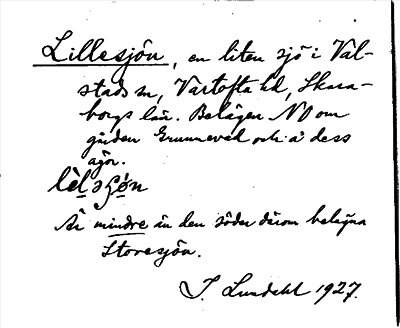 Lillesjön, en liten sjö i Val-
stads sn, Vartofta hd, Skara-
borgs län. Belägen NO om
gården Grunneved och å dess
ägor.
Är mindre än den söder därom belägna
Storesjön.
I. Lundahl 1927.